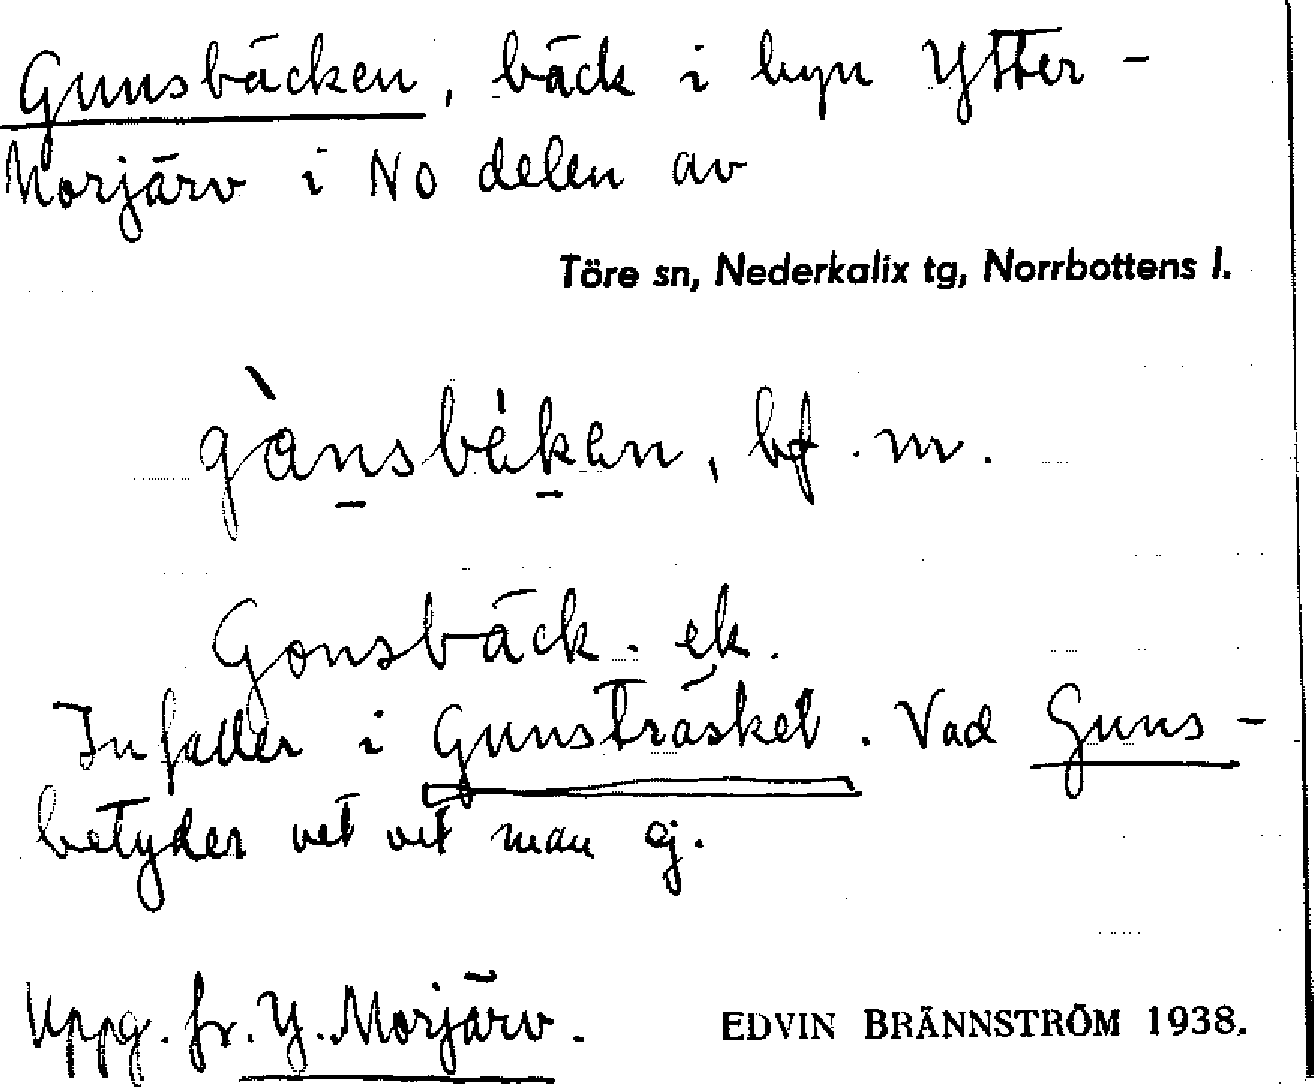 Gunsbäcken, bäck i byn Ytter-
Morjärv i NO delen av
Töre sn, Nederkalix tg, Norrbottens l.
gànsbäken, bf. m.
Gonsbäck. ek.
Infaller i Gunsträsket. Vad Guns-
betyder vet vet man ej.
Uppg. fr. Y. Morjärv.
EDVIN BRÄNNSTRÖM 1938.